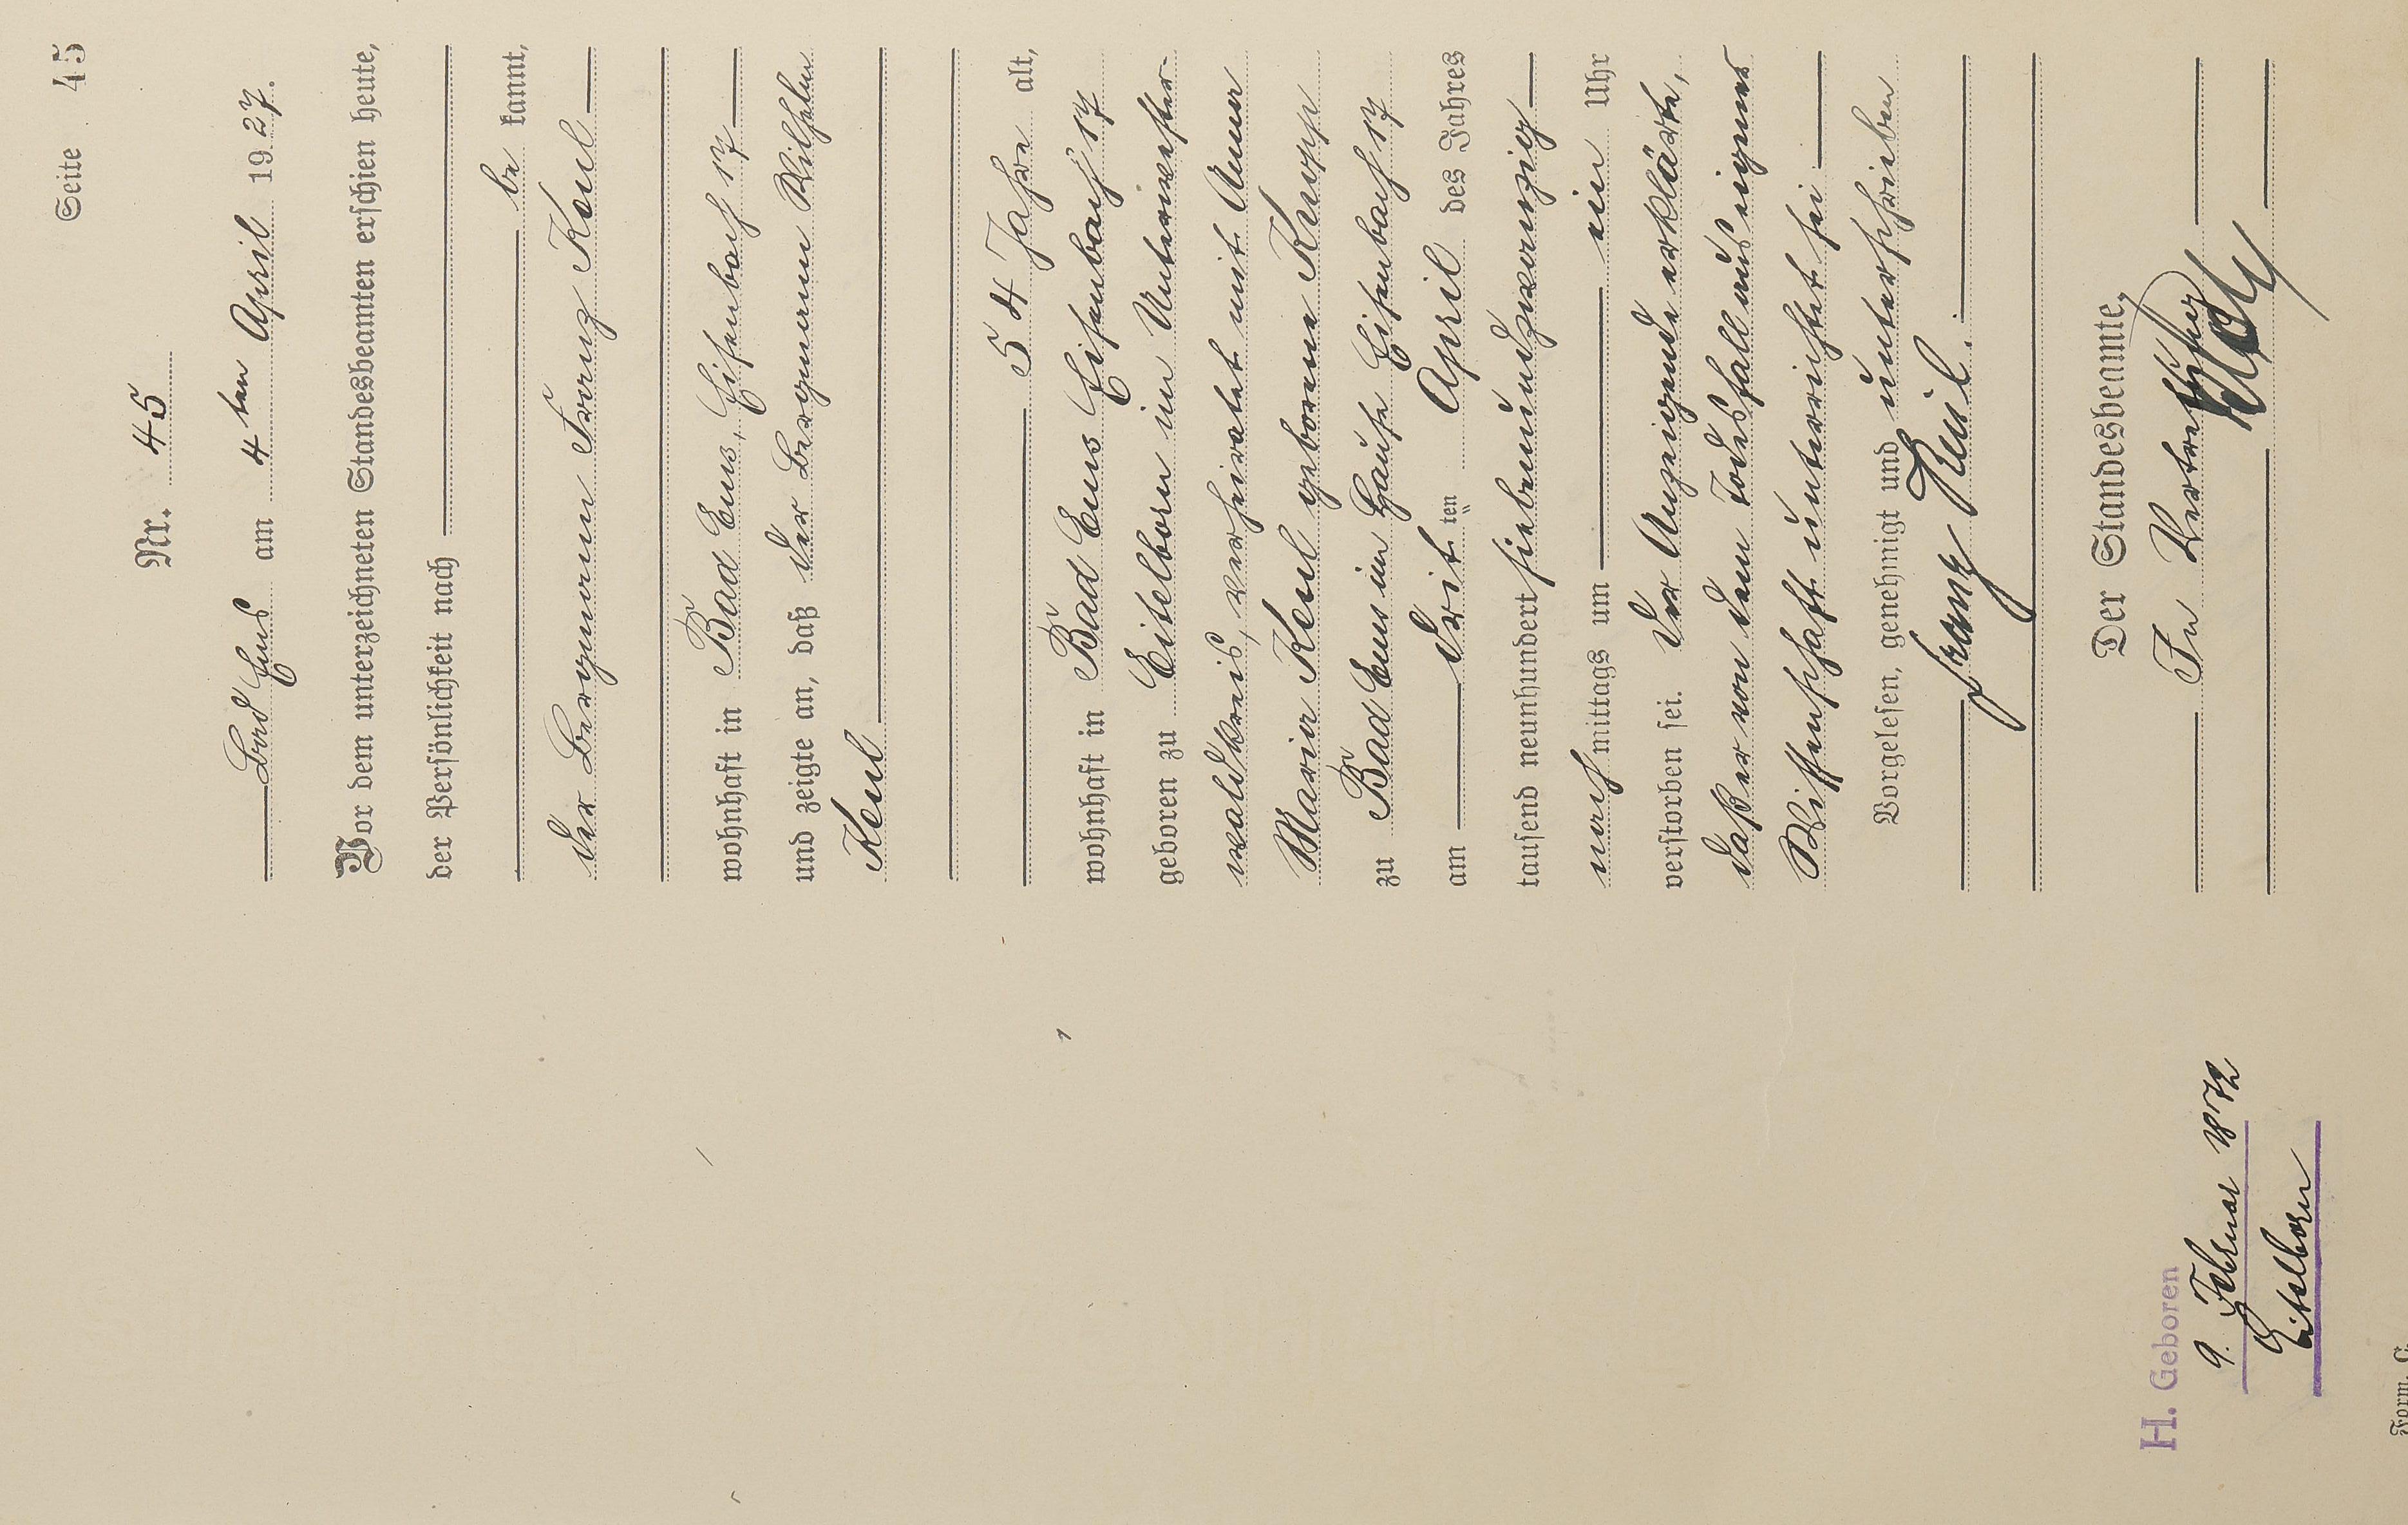 Seite 45
Nr. 45
Bad Ems am 4ten April 1927.
Vor dem unterzeichneten Standesbeamten erschien heute,
der Persönlichkeit nach
be kannt,
der Bergmann Franz Keul
wohnhaft in Bad Ems, Eisenbach 17
und zeigte an, daß der Bergmann Wilhelm
Keul
54 Jahre alt,
wohnhaft in Bad Ems Eisenbach 17
geboren zu Eitelborn im Unterwester-
waldkreis, verheiratet mit Anna
Maria Keul geborene Knopp
zu Bad Ems im Hause Eisenbach 17
am dritten April des Jahres
tausend neunhundert siebenundzwanzig
nachmittags um ein Uhr
verstorben sei. Der Anzeigende erklärte,
daß er von dem Todesfall aus eigener
Wissenschaft unterrichtet sei
Vorgelesen, genehmigt und unterschrieben
Franz Keul.
Der Standesbeamte,
In Vertretung
H. Geboren
9. Februar 1872
Eitelborn
Form. C